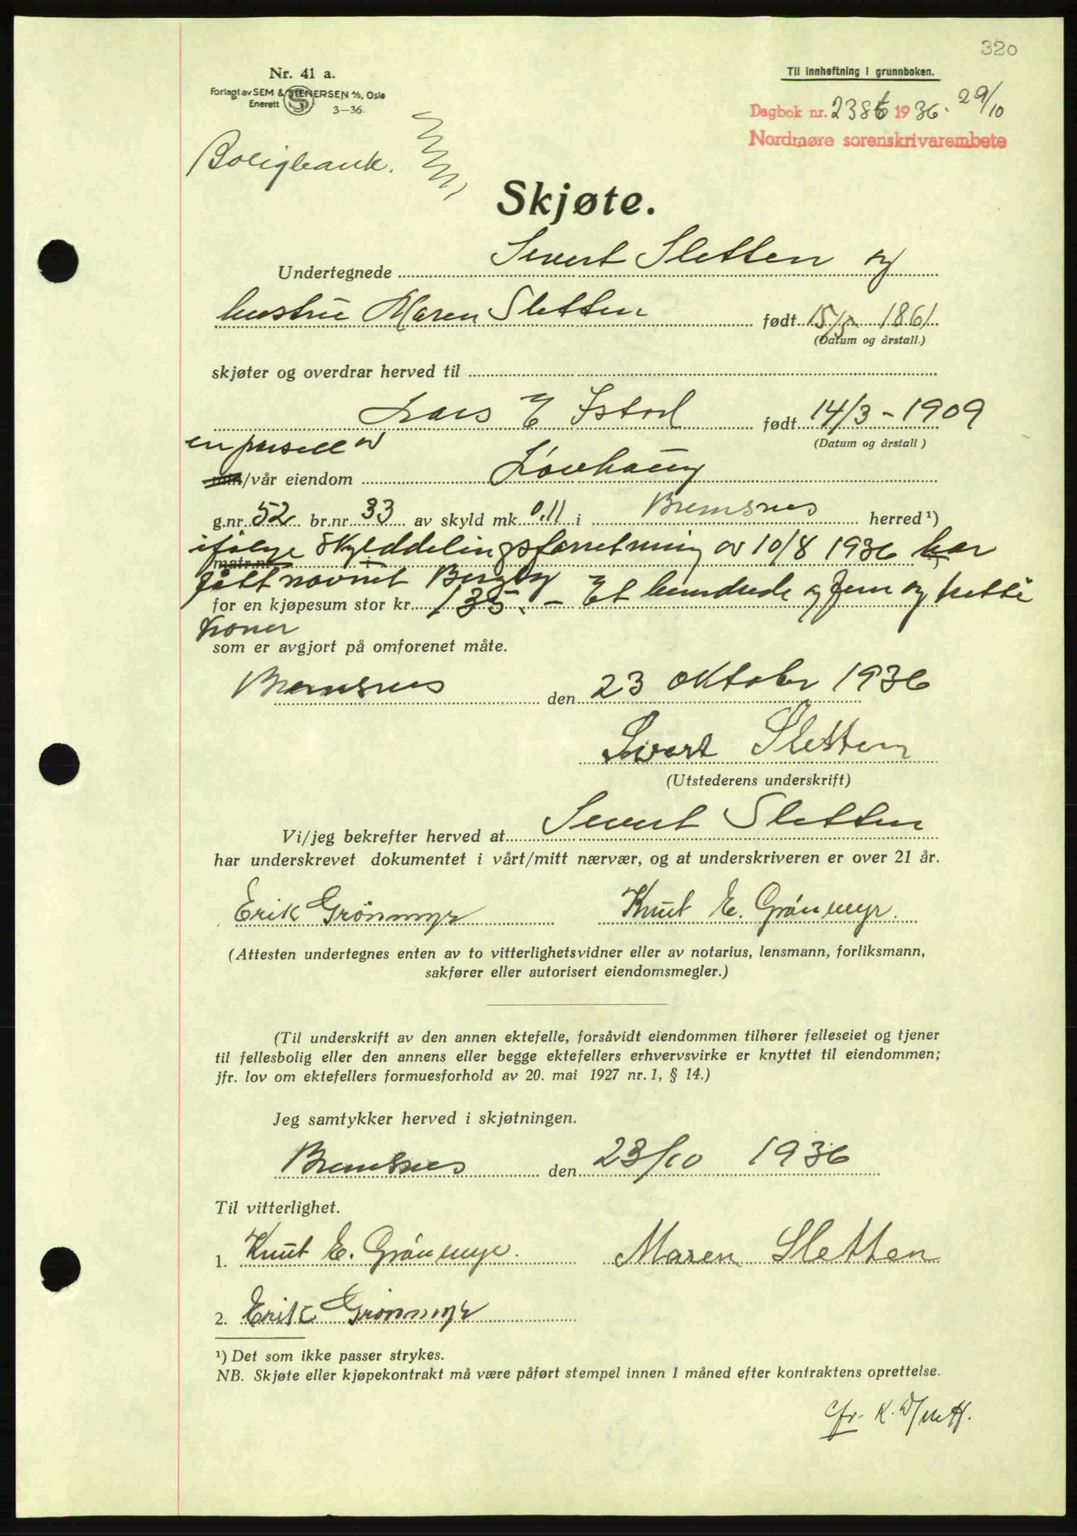 320
Nr. 41 a.
Forlagt av SEM & STENERSEN A/S, Oslo
Enerett 3-36.
Til innheftning i grunnboken.
Dagbok nr. 2386 1936. 29/10
Nordmøre sorenskrivarembete
Boligbank.
Skjøte.
Undertegnede Sivert Sletten og
hustru Maren Sletten født 15/5 1861
(Datum og årstall.)
skjøter og overdrar herved til
Lars E Istad født 14/3 - 1909
(Datum og årstall)
en parsell av
min/vår eiendom Lövhaug
g.nr. 52 br.nr 33 av skyld mk 0.11 i Bremsnes herred¹)
ifölge skylddelingsforretning av 10/8 1936 har
matr.nr.
fått navnet Bergly
for en kjøpesum stor kr. 135.- Et hundrede og fem og tretti
kroner
som er avgjort på omforenet måte.
Bremsnes den 23 oktober 1936
Sivert Sletten
(Utstederens underskrift)
Vi/jeg bekrefter herved at Sivert Sletten
har underskrevet dokumentet i vårt/mitt nærvær, og at underskriveren er over 21 år.
Erik Grönmyr Knut E. Grönmyr.
(Attesten undertegnes enten av to vitterlighetsvidner eller av notarius, lensmann, forliksmann,
sakfører eller autorisert eiendomsmegler.)
(Til underskrift av den annen ektefelle, forsåvidt eiendommen tilhører felleseiet og tjener
til fellesbolig eller den annens eller begge ektefellers erhvervsvirke er knyttet til eiendommen;
jfr. lov om ektefellers formuesforhold av 20. mai 1927 nr. 1, § 14.)
Jeg samtykker herved i skjøtningen.
Bremsnes den 23/10 1936
Til vitterlighet.
1. Knut E. Grönmyr. Maren Sletten
2. Erik Grönmyr
¹) Det som ikke passer strykes.
NB. Skjøte eller kjøpekontrakt må være påført stempel innen 1 måned efter kontraktens oprettelse.
cfr. K.